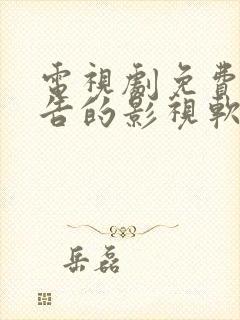 電視劇免費
告的影視軟
岳磊